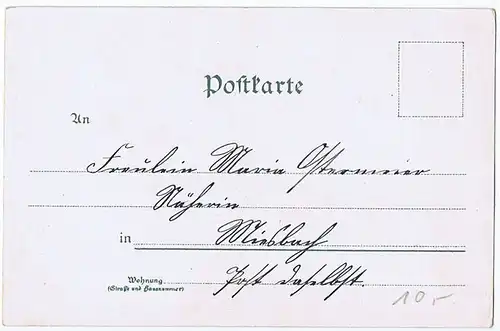 Postkarte
An
Fräulein Maria Ostermeier
Näherin
in Miesbach
Wohnung Post daselbst.
(Straße und Hausnummer)
10,-